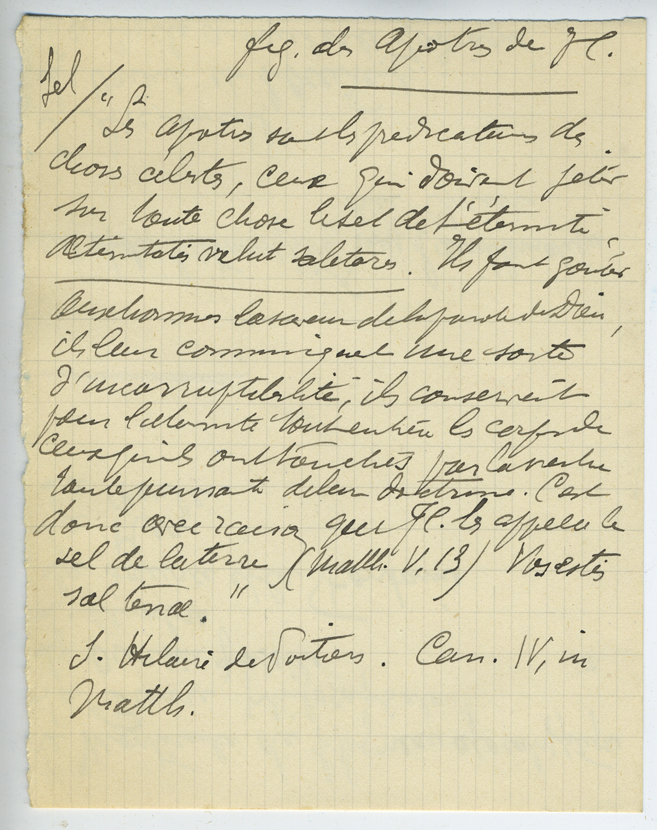 fig. des Apôtres de J C.
Sel
"Les apôtres sont les prédicateurs des
choses célestes, ceux qui doivent jeter
sur toute chose le sel de l'éternité,
aeternitatis velut salitores. Ils font goûter
aux hommes la saveur de la parole de Dieu,
ils leur communiquent une sorte
d'incorruptibilité, ils conservent
pour l'éternité tout entière les corps de
ceux qu'ils ont touchés par la vertu
toute puissante de leur doctrine. C'est
donc avec raison que J C. les appelle le
sel de la terre (Matth. V, 13) Vos estis
sal terrae."
S. Hilaire de Poitiers. Can. IV, in
Matth.